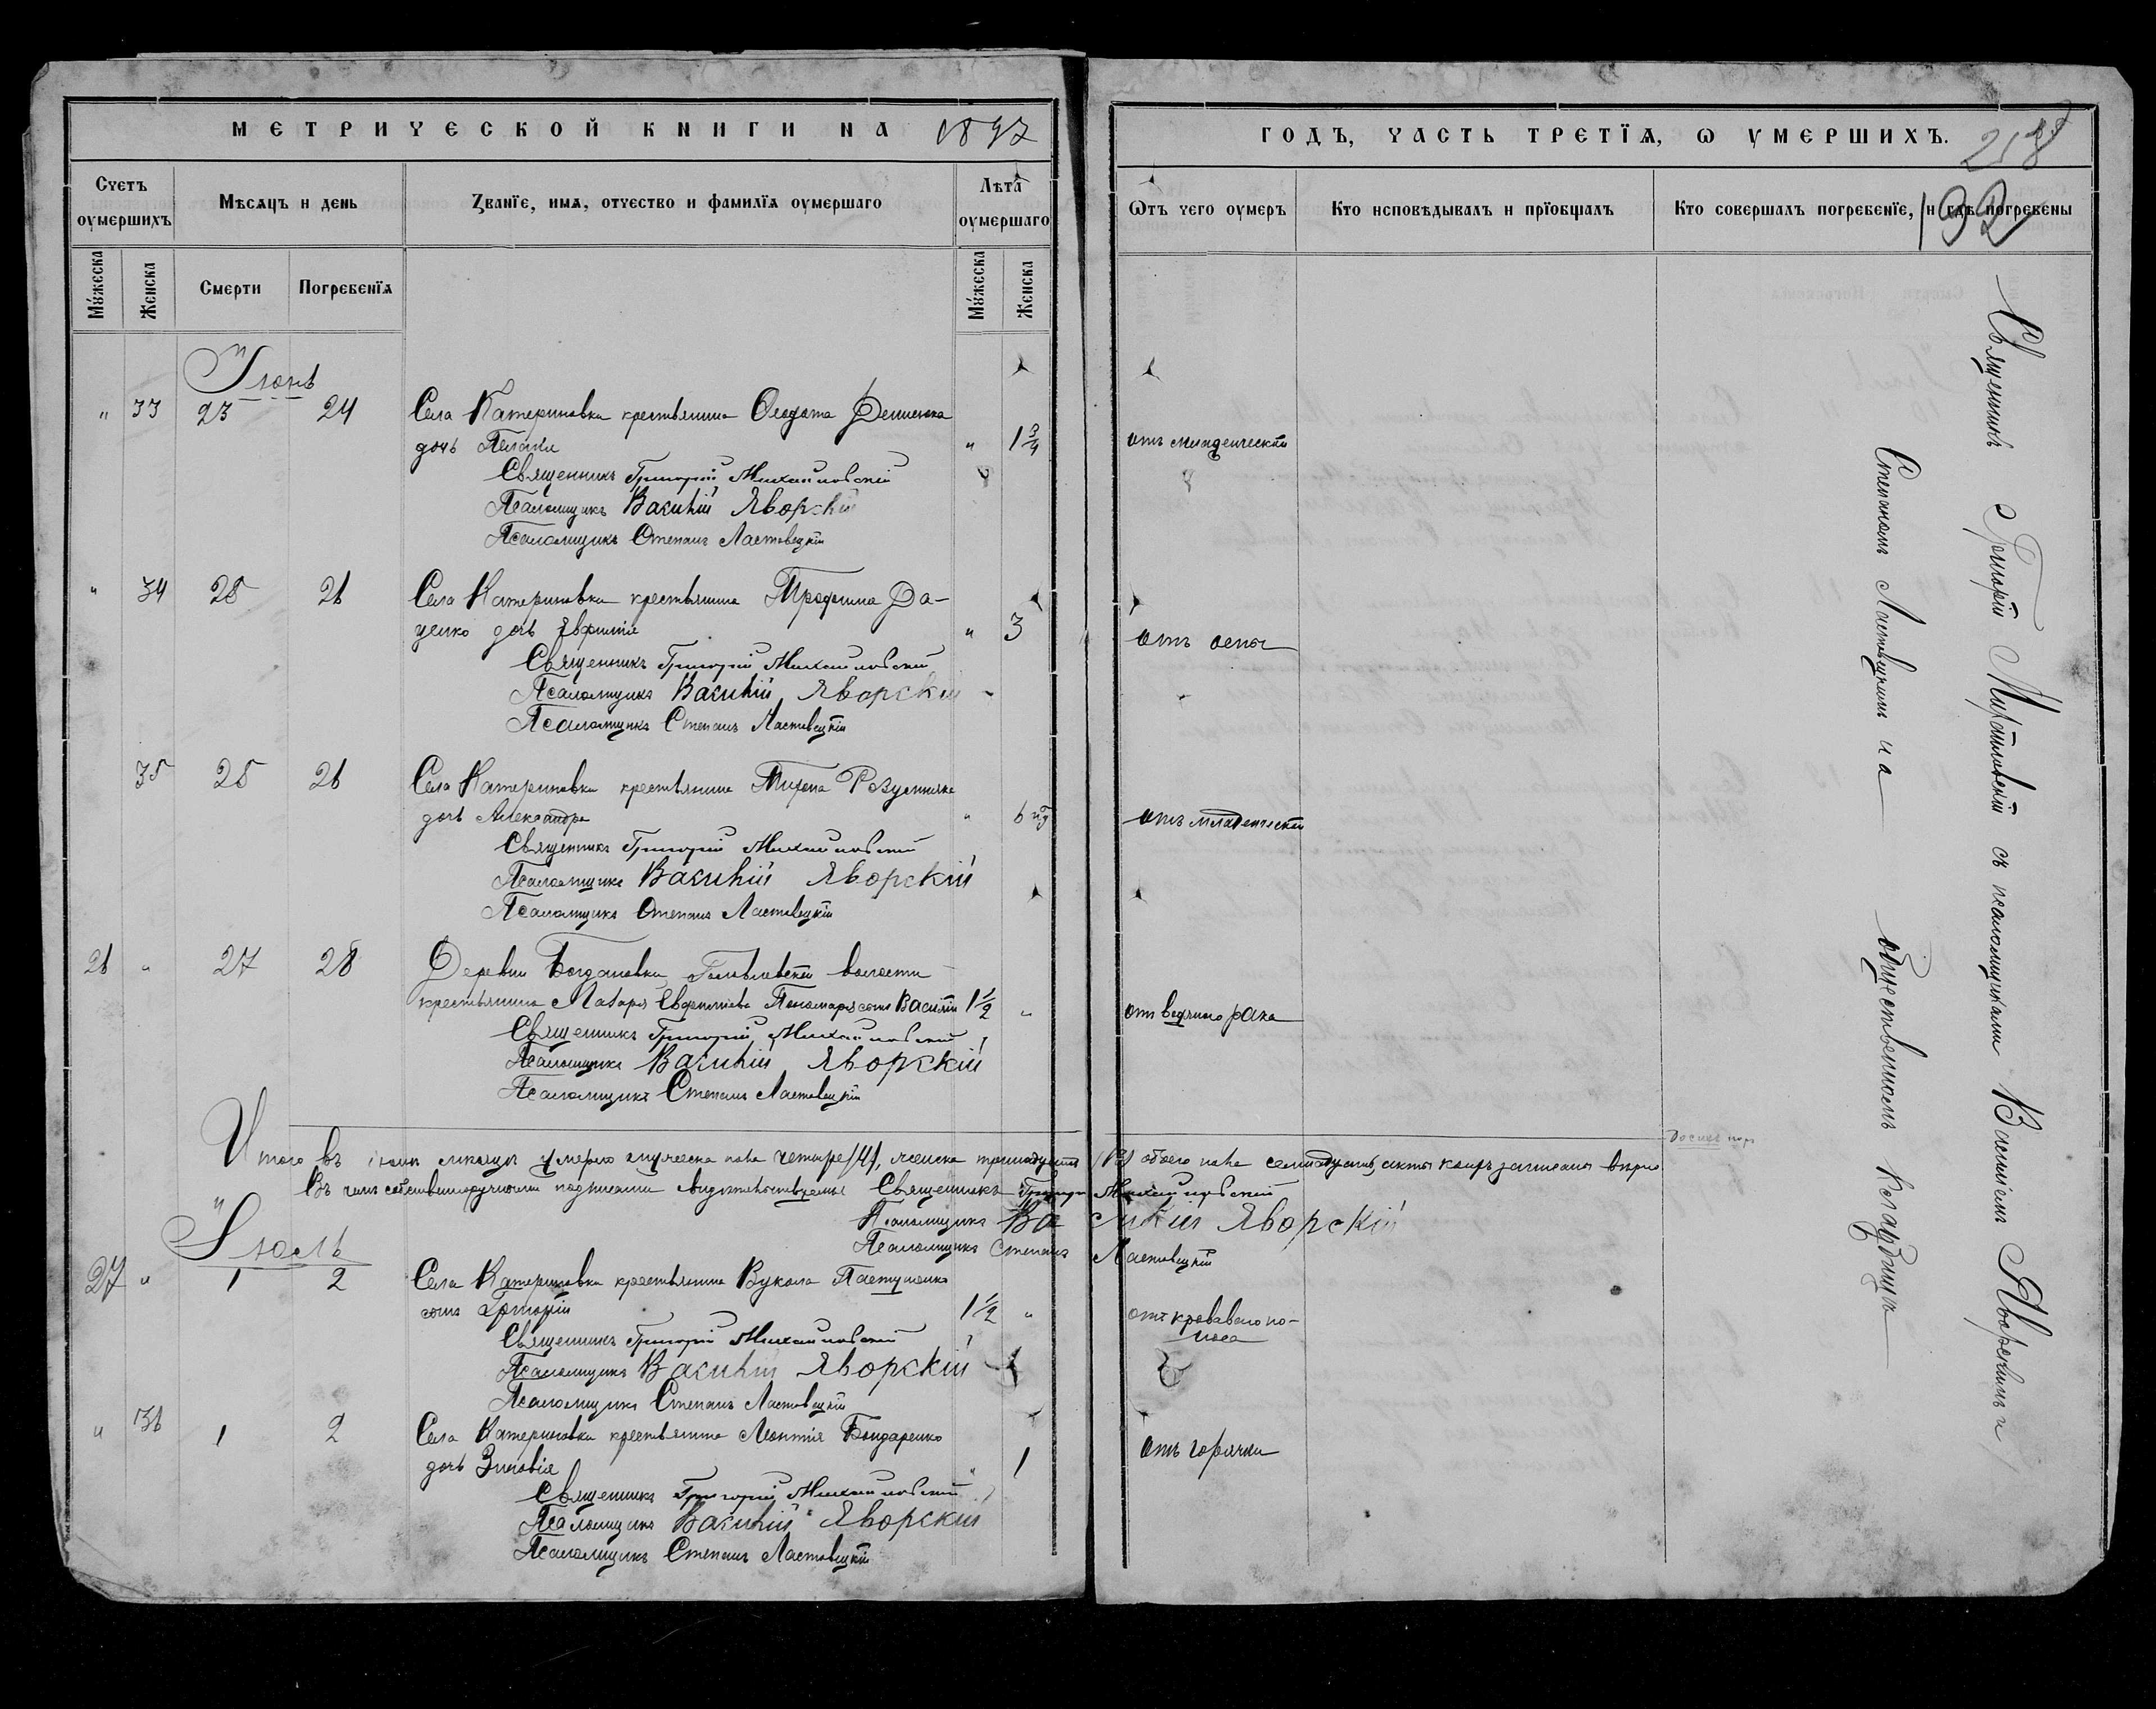 МЕТРИЧЕСКОЙ КНИГИ НА 1897
ГОДЪ, ЧАСТЬ ТРЕТЇЯ, Ѡ УМЕРШИХЪ.
258
192
Счетъ оумершихъ
Мѣсяцъ и день
Званїе, имя, отчество и фамилїя оумершаго
Лѣта оумершаго
Ѿтъ чего оумеръ
Кто исповѣдывалъ и прїобщалъ
Кто совершалъ погребенїе, и гдѣ погребены
Мужеска
Женска
Смерти
Погребенїя
Мужеска
Женска
Іюнь
" 33 23 24 Села Катериновки крестьянина Ѳеодота
дочь " 1 3/4 отъ младенческой
Священникъ Григорій Михайловскій
Псаломщикъ Василій Яворскій
Псаломщикъ Степанъ Ластовецкій
" 34 25 26 Села Катериновки крестьянина Трофима Да-
ценко дочь Евфимія " 3 отъ оспы
Священникъ Григорій Михайловскій
Псаломщикъ Василій Яворскій
Псаломщикъ Степанъ Ластовецкій
35 25 26 Села Катериновки крестьянина
дочь Александра " 6 отъ младенческой
Священникъ Григорій Михайловскій
Псаломщикъ Василій Яворскій
Псаломщикъ Степанъ Ластовецкій
26 " 27 28 Деревни Богдановки волости
крестьянина Макара Евфиміева Пономаря сынъ Василій 1 1/2 " отъ водяного рака
Священникъ Григорій Михайловскій
Псаломщикъ Василій Яворскій
Псаломщикъ Степанъ Ластовецкій
Итого въ іюнѣ мѣсяцѣ умерло мужеска пола четыре /4/, женска тринадцать /13/ обоего пола семнадцать, акты коихъ записаны вѣрно
Въ чемъ собственноручными подписами свидѣтельствуемъ Священникъ Григорій Михайловскій
Псаломщикъ Василій Яворскій
Псаломщикъ Степанъ Ластовецкій
Іюль
27 " 1 2 Села Катериновки крестьянина Вукола Пастушенко
сынъ Григорій 1 1/2 " отъ кроваваго по-
носа
Священникъ Григорій Михайловскій
Псаломщикъ Василій Яворскій
Псаломщикъ Степанъ Ластовецкій
" 36 1 2 Села Катериновки крестьянина Леонтія Бондаренко
дочь Зиновія " 1 отъ горячки
Священникъ Григорій Михайловскій
Псаломщикъ Василій Яворскій
Псаломщикъ Степанъ Ластовецкій
Священникъ Григорій Михайловскій съ псаломщиками Василіемъ Яворскимъ и
Степаномъ Ластовецкимъ на общественномъ кладбищѣ